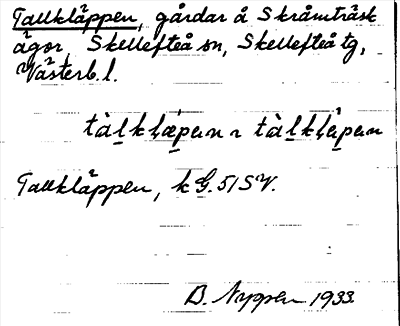 Tallkläppen, gårdar å Skråmträsk
ägor, Skellefteå sn, Skellefteå tg,
Västerb. l.
tàlklæ̀pɐn ~ tàlklæ̀pɐn
Tallkläppen, k G. 51 SV.
B. Nyppen 1933